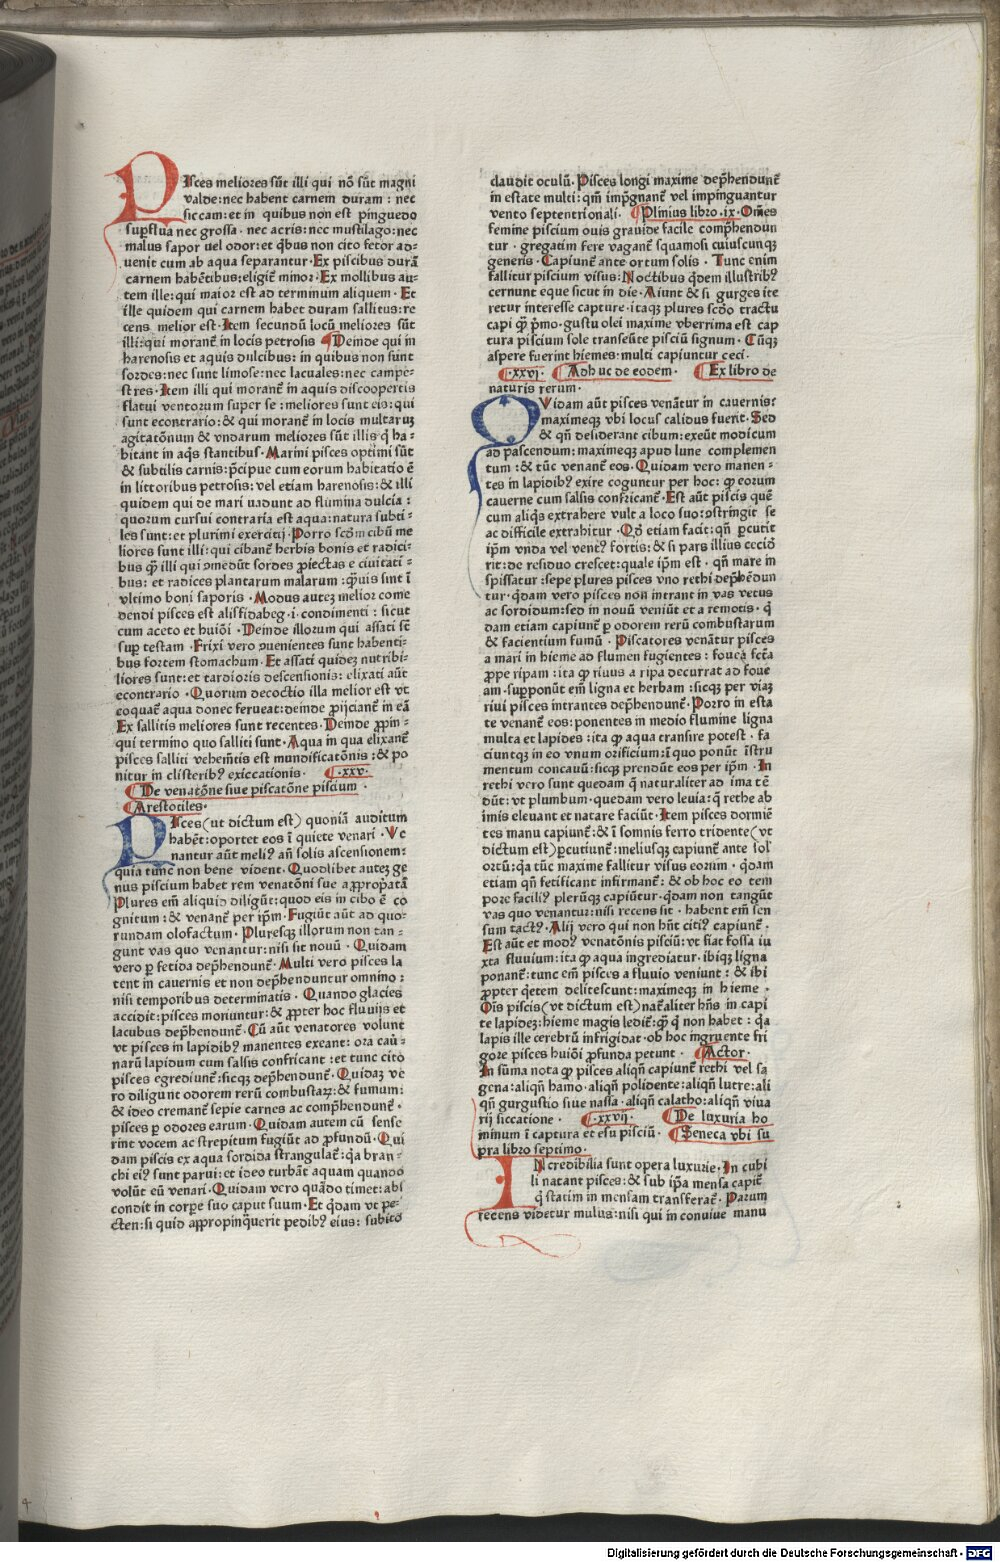 PIsces meliores sūt illi qui nō sūt magni
valde: nec habent carnem duram : nec
siccam: et in quibus non est pinguedo
supflua nec grossa · nec acris: nec mustilago: nec
malus sapor uel odor: et qbus non cito fetor ad-
uenit cum ab aqua separantur · Ex piscibus durā
carnem habētibus: eligiē minoꝛ · Ex mollibus au-
tem ille: qui maior est ad terminum aliquem · Et
ille quidem qui carnem habet duram sallitus: re
cens melior est · Item secundū locū meliores sūt
illi: qui moranē in locis petrosis ¶ Deinde qui in
harenosis et aquis dulcibus: in quibus non sunt
sordes: nec sunt limose: nec lacuales: nec campe-
stres · Item illi qui moranē in aquis discoopertis
flatui ventorum super se : meliores sunt eis: qui
sunt econtrario: & qui moranē in locis multarum
agitatōnum & vndarum meliores sūt illis q̄ ha-
bitant in aq̄s stantibus · Marini pisces optimi sūt
& subtilis carnis: p̄cipue cum eorum habitatio ē
in littoribus petrosis: vel etiam harenosis: & illi
quidem qui de mari uadunt ad flumina dulcia :
quorum cursui contraria est aqua: natura subti-
les sunt: et plurimi exercitij · Porro scōm cibū me
liores sunt illi: qui cibanē herbis bonis et radici-
bus q̄ illi qui ꝯmedūt sordes ꝓiectas e ciuitati-
bus: et radices plantarum malarum : q̄uis sint ī
vltimo boni saporis · Modus autez melior come
dendi pisces est alisfidabeg · i · condimenti : sicut
cum aceto et huiōi · Deinde illorum qui assati sē
sup testam · Frixi vero ꝯuenientes sunt habenti-
bus fortem stomachum · Et assati quidez nutribi-
liores sunt: et tardioris descensionis: elixati aūt
econtrario · Quorum decoctio illa melior est vt
coquat aqua donec ferueat: deinde ꝓijcianē in eā
Ex sallitis meliores sunt recentes · Deinde ꝓpin-
qui termino quo salliti sunt · Aqua in qua elixanē
pisces salliti vehemētis est mundificatōnis : & po
nitur in clisterib9 exiccationis · ¶ ·xxv·
¶ De venatōne siue piscatōne piscium ·
¶ Arestotiles ·
PIsces (ut dictum est) quoniā auditum
habēt: oportet eos ī quiete venari · Ve
nantur aūt meli9 añ solis ascensionem:
quia tunc non bene vident · Quodlibet autez ge
nus piscium habet rem venatōni sue apꝓp̄atā
Plures em̄ aliquid diligūt: quod eis in cibo ē co
gnitum : & venanē per ip̄m · Fugiūt aūt ad quo-
rundam olofactum · Pluresq̨ illorum non tan-
gunt vas quo venantur: nisi sit nouū · Quidam
vero p fetida dep̄hendunē · Multi vero pisces la
tent in cauernis et non dep̄henduntur omnino :
nisi temporibus determinatis · Quando glacies
accidit: pisces moriuntur: & ꝓpter hoc fluuijs et
lacubus dep̄hendunē · Cū aūt venatores volunt
vt pisces in lapidib9 manentes exeant: ora cau-
narū lapidum cum salsis confricant : et tunc cito
pisces egrediunē: sicq̨ dep̄hendunē · Quidaz ve
ro diligunt odorem rerū combustaꝝ: & fumum:
& ideo cremanē sepie carnes ac comp̄hendunē ·
pisces p odores earum · Quidam autem cū sense
rint vocem ac strepitum fugiūt ad ꝓfundū · Qui
dam piscis ex aqua sordida strangulaē: q̄a bran-
chi ei9 sunt parui: et ideo turbāt aquam quando
volūt eū venari · Quidam vero quādo timet: abs
condit in corpe suo caput suum · Et q̄dam vt pe-
cten: si quid appropinq̄uerit pedib9 eius: subito
claudit oculū · Pisces longi maxime dep̄hendunē
in estate multi: qm̄ imp̄gnanē vel impinguantur
vento septentrionali · ¶ Plinius libro · ix · Om̄es
femine piscium ouis grauide facile comp̄hendun
tur · gregatim fere vaganē squamosi cuiuscunq̨
generis · Capiunē ante ortum solis · Tunc enim
fallitur piscium visus: Noctibus q̄dem illustrib9
cernunt eque sicut in die · Aiunt & si gurges ite
retur interesse capture · itaq̨ plures scdo tractu
capi q̄ p̄mo · gustu olei maxime vberrima est cap
tura piscium sole transeūte pisciū signum · Cūq̨
aspere fuerint hiemes: multi capiuntur ceci ·
¶ ·xxvi· ¶ Adhuc de eodem · ¶ Ex libro de
naturis rerum ·
QVidam aūt pisces venātur in cauernis:
maximeq̨ vbi locus calidus fuerit · Sed
& qñ desiderant cibum: exeūt modicum
ad pascendum: maximeq̨ apud lune complemen
tum : & tūc venanē eos · Quidam vero manen-
tes in lapidib9 exire coguntur per hoc: q̄ eorum
cauerne cum salsis confricanē · Est aūt piscis quē
cum aliq̄s extrahere vult a loco suo: ꝯstringit se
ac difficile extrahitur · Qd̄ etiam facit: qñ pcutit
ip̄m vnda vel vent9 fortis: & si pars illius cecid
rit: de residuo crescet: quale ip̄m est · qñ mare in
spissatur : sepe plures pisces vno rethi dep̄hēdun
tur · q̄dam vero pisces non intrant in vas vetus
ac sordidum: sed in nouū veniūt et a remotis · q̄
dam etiam capiunē p odorem rerū combustarum
& facientium fumū · Piscatores venātur pisces
a mari in hieme ad flumen fugientes : fouea fcta
ꝓpe ripam : ita q̄ riuus a ripa decurrat ad foue
am · supponūt em̄ ligna et herbam : sicq̨ per viaz
riui pisces intrantes dep̄hendunē · Porro in esta
te venanē eos: ponentes in medio flumine ligna
multa et lapides : ita q̄ aqua transire potest · fa
ciuntq̨ in eo vnum orificium: ī quo ponūt īstru
mentum concauū: sicq̨ prendūt eos per ip̄m · In
rethi vero sunt quedam q̄ naturaliter ad ima tē
dūt: vt plumbum · quedam vero leuia: q̄ rethe ab
imis eleuant et natare faciūt · Item pisces dormiē
tes manu capiunē: & ī somnis ferro tridente (vt
dictum est) pcutiunē: meliusq̨ capiunē ante sol
ortū: q̄a tūc maxime fallitur visus eorum · q̄dam
etiam qñ fetificant infirmanē : & ob hoc eo tem
pore facili9 plerūq̨ capiūtur · q̄dam non tangūt
vas quo venantur: nisi recens sit · habent em̄ sen
sum tact9 · Alij vero qui non hn̄t citi9 capiunē ·
Est aūt et mod9 venatōnis pisciū: vt fiat fossa iu
xta fluuium: ita q̄ aqua ingrediatur · ibiq̨ ligna
ponanē: tunc em̄ pisces a fluuio veniunt : & ibi
ꝓpter q̄etem delitescunt: maximeq̨ in hieme ·
Oīs piscis (vt dictum est) naāliter hn̄s in capi
te lapidez: hieme magis ledit: q̄ q̄ non habet : q̄a
lapis ille cerebrū infrigidat · ob hoc ingruente fri
gore pisces huiōi ꝓfunda petunt · ¶ Actor ·
In sūma nota q̄ pisces aliqñ capiunē rethi vel sa
gena: aliqñ hamo · aliqñ polidente: aliqñ lutre: ali
qñ gurgustio siue nassa · aliqñ calatho: aliqñ viua
rij siccatione · ¶ ·xxvij· ¶ De luxuria ho
minum ī captura et esu pisciū · ¶ Seneca vbi su
pra libro septimo ·
INcredibilia sunt opera luxurie · In cubi
li natant pisces: & sub ip̄a mensa capiē
q̄ statim in mensam transferaē · Parum
recens videtur mulus: nisi qui in conuiue manu
Digitalisierung gefördert durch die Deutsche Forschungsgemeinschaft - DFG